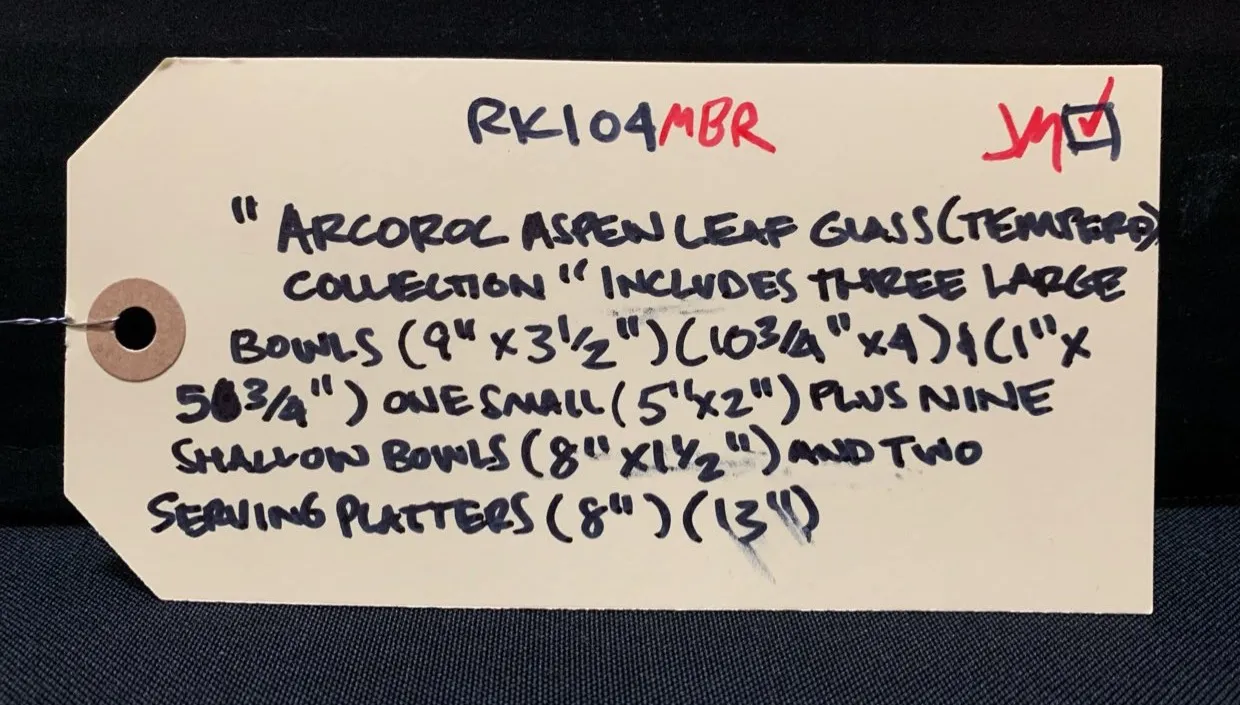 RK104MBR JM
" ARCOROC ASPEN LEAF GLASS (TEMPERED)
COLLECTION " INCLUDES THREE LARGE
BOWLS (9" X 3 1/2") (10 3/4" X 4) & (1" X
5 3/4") ONE SMALL (5" X 2") PLUS NINE
SHALLOW BOWLS (8" X 1 1/2") AND TWO
SERVING PLATTERS (8") (13")